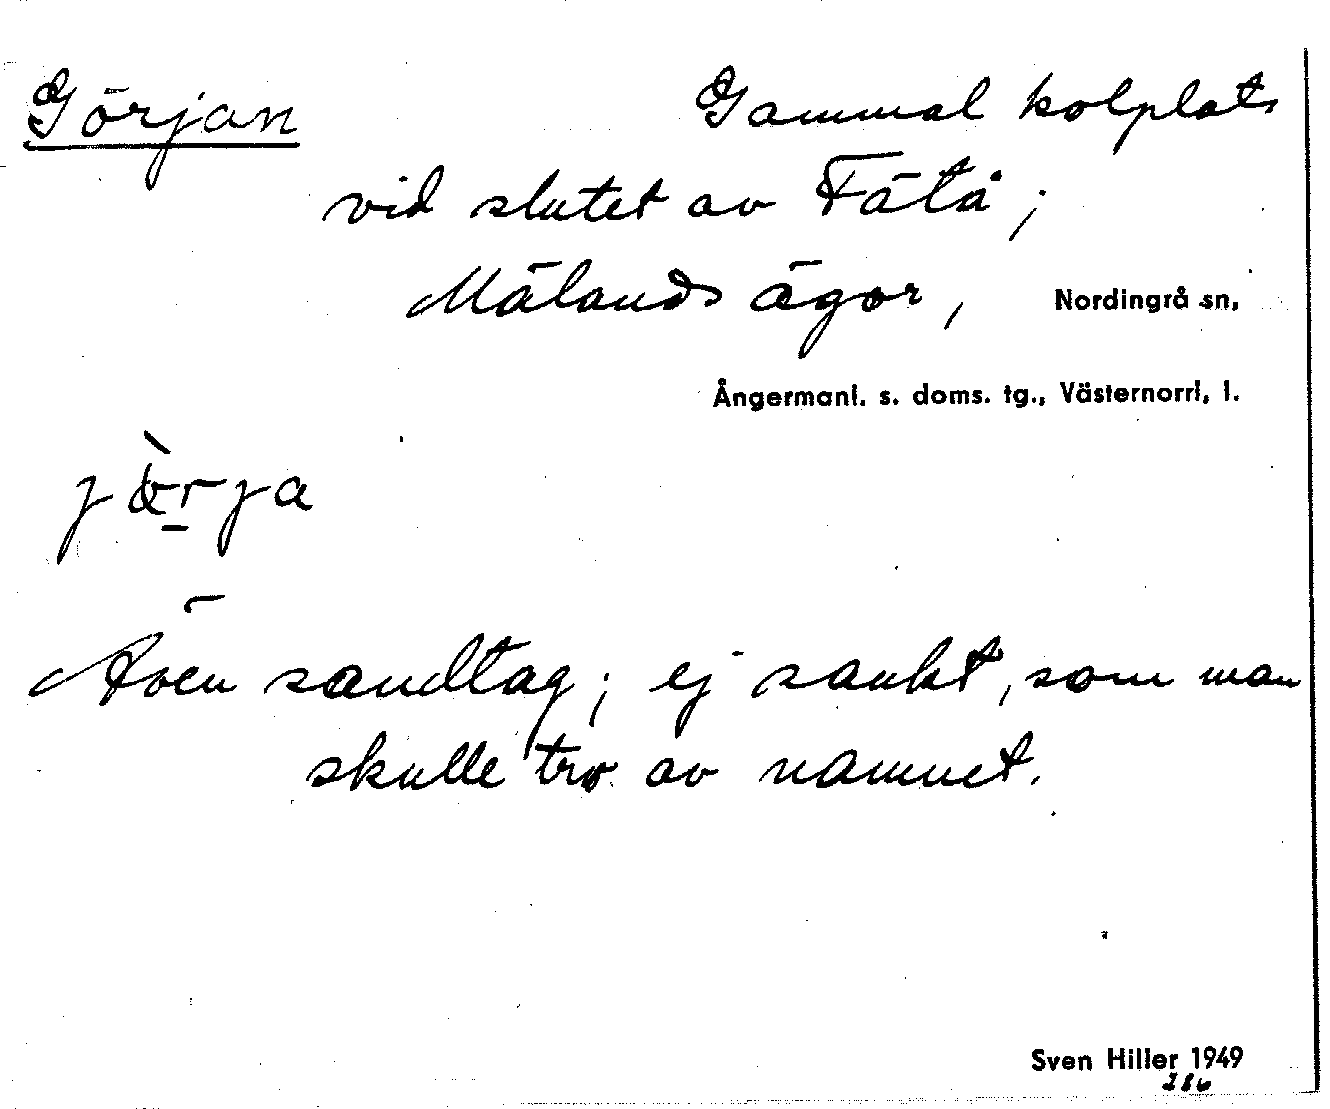 Görjan Gammal kolplats
vid slutet av Fätå;
Mälands ägor, Nordingrå sn,
Ångermanl. s. doms. tg., Västernorrl, l.
Även sandtag; ej sankt, som man
skulle tro av namnet.
Sven Hiller 1949
286